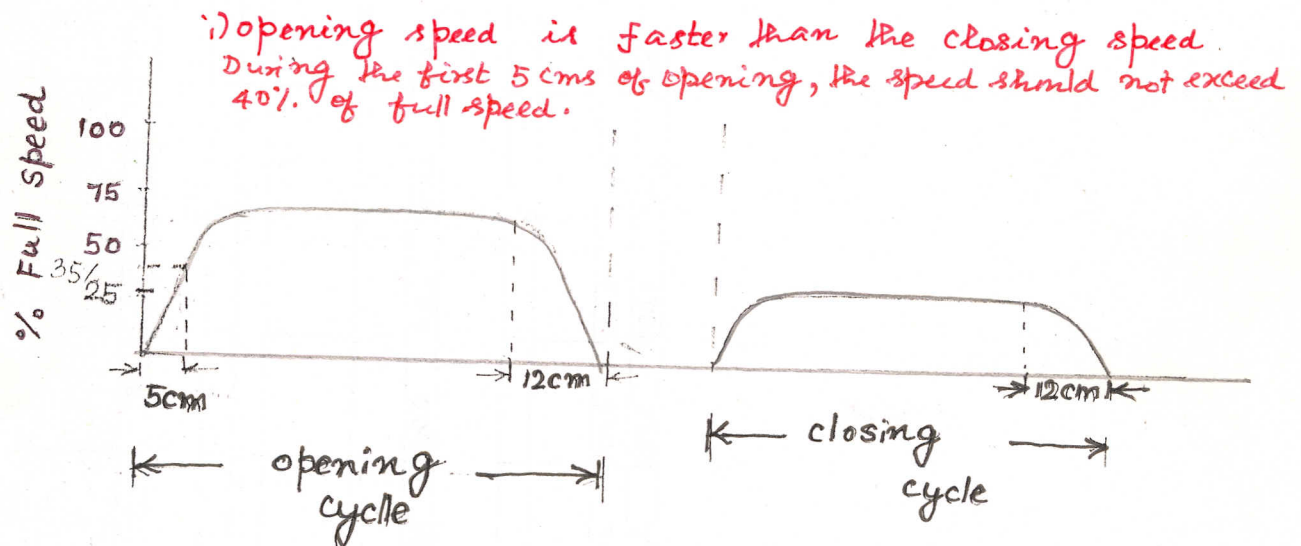 i) opening speed is faster than the closing speed.
During the first 5 cms of opening, the speed should not exceed
40% of full speed.
% Full speed
100
75
50
35%
25
5cm
12cm
12cm
opening
cycle
closing
cycle